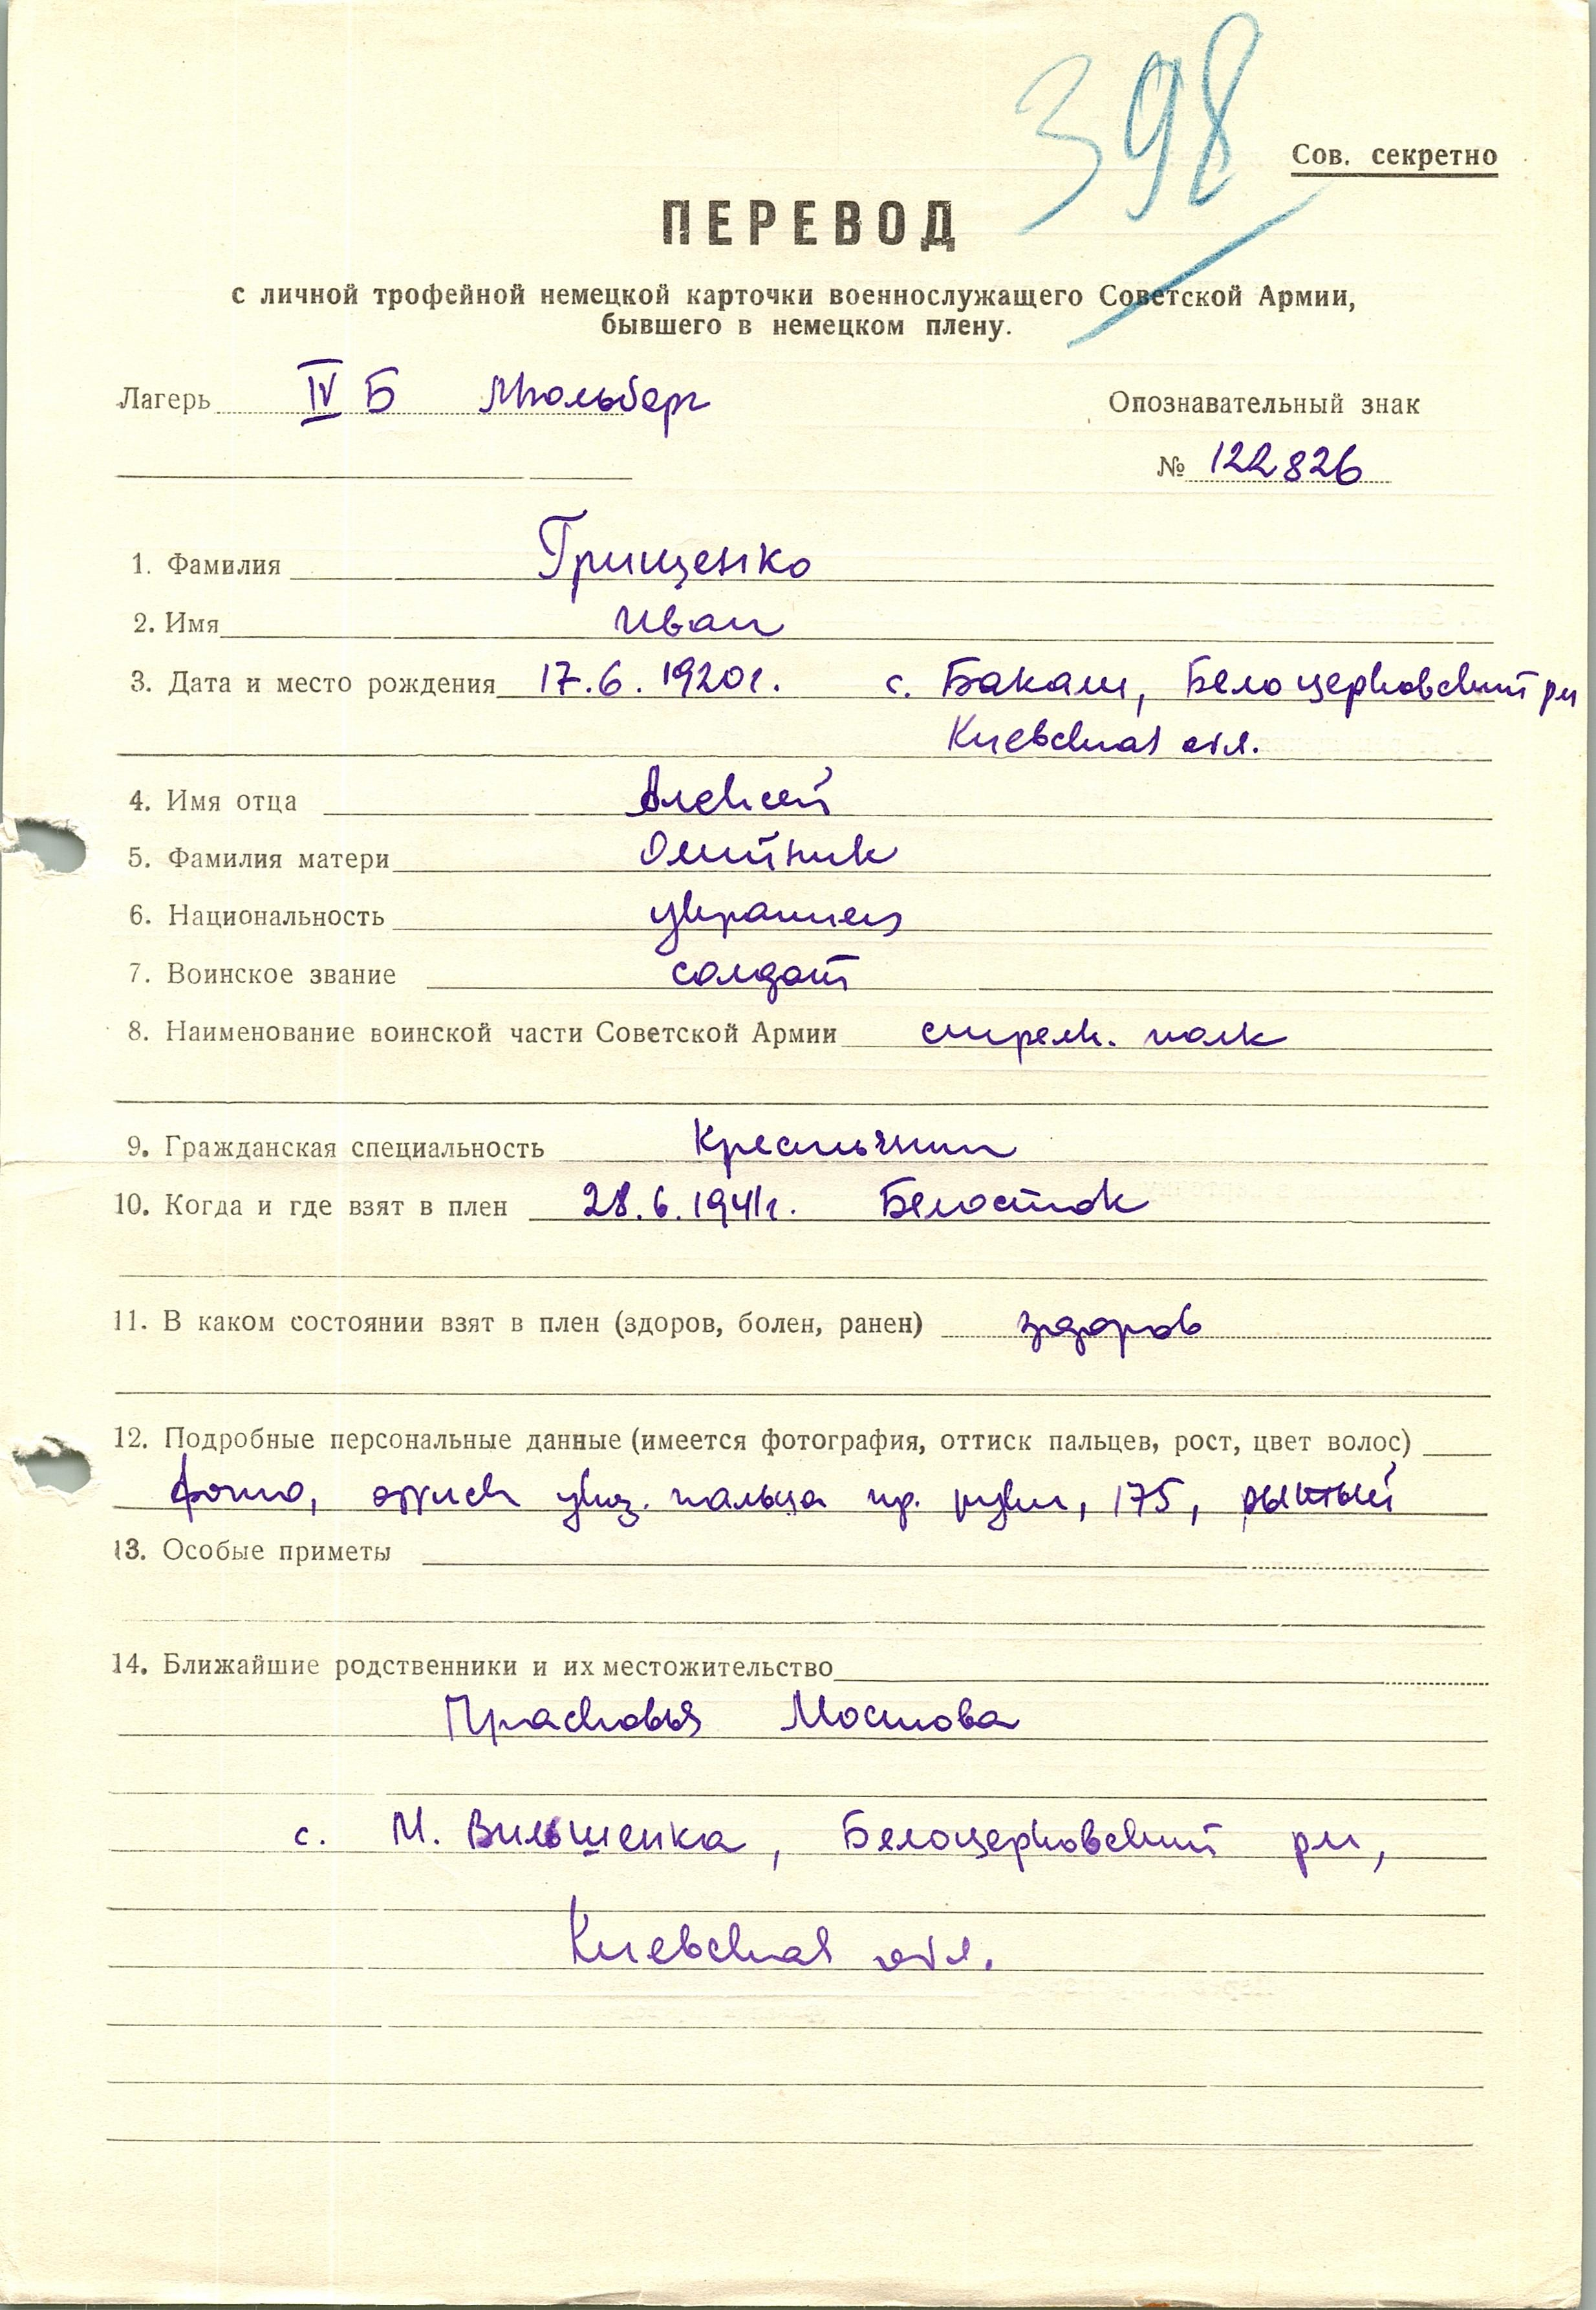 398
Сов. секретно
ПЕРЕВОД
с личной трофейной немецкой карточки военнослужащего Советской Армии,
бывшего в немецком плену.
Лагерь IV Б Мюльберг
Опознавательный знак
№ 122826
1. Фамилия Грищенко
2. Имя Иван
3. Дата и место рождения 17.6.1920г. с. Бакали, Белоцерковский рн
Киевская обл.
4. Имя отца Алексей
5. Фамилия матери Олийник
6. Национальность украинец
7. Воинское звание солдат
8. Наименование воинской части Советской Армии стрелк. полк
9. Гражданская специальность Крестьянин
10. Когда и где взят в плен 28.6.1941г. Белосток
11. В каком состоянии взят в плен (здоров, болен, ранен) здоров
12. Подробные персональные данные (имеется фотография, оттиск пальцев, рост, цвет волос)
фото, оттиск указ. пальца пр. руки, 175,
13. Особые приметы
14. Ближайшие родственники и их местожительство
Прасковья Мостова
с. М. Вильшенка, Белоцерковский рн,
Киевская обл.